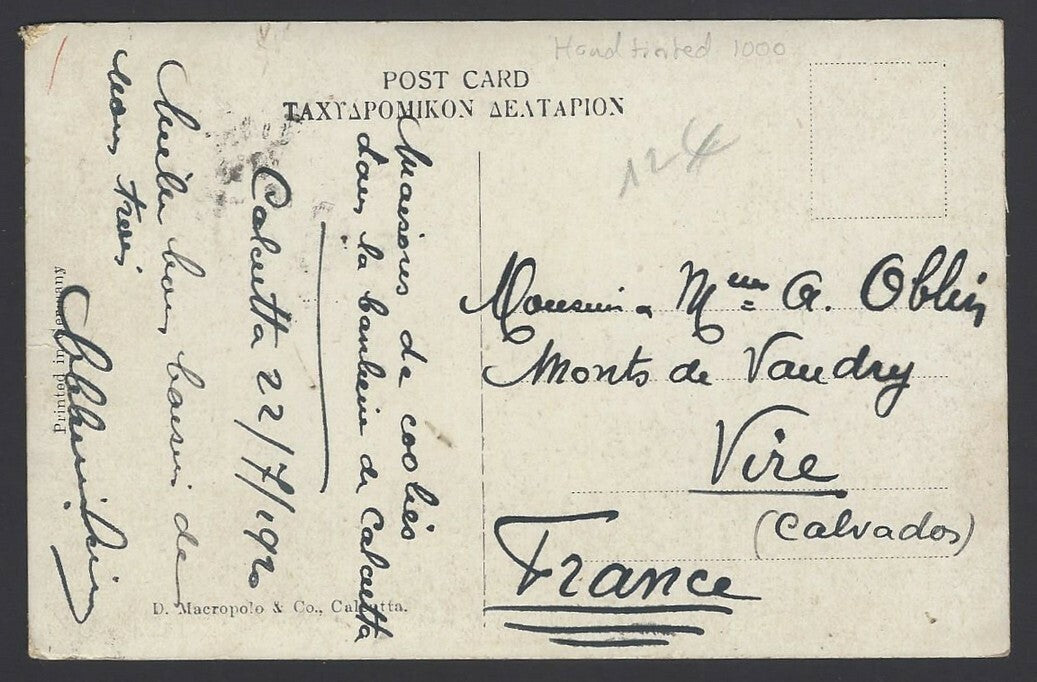 Hand tinted 1000
POST CARD
ΤΑΧΥΔΡΟΜΙΚΟΝ ΔΕΛΤΑΡΙΟΝ
12
Maisons de coolies
dans la banlieue de Calcutta
Calcutta 22/7/1920
bons baisers de
Monsieur & Mme A. Oblin
Monts de Vaudry
Vire
(Calvados)
France
Printed in Germany
D. Macropolo & Co., Calcutta.